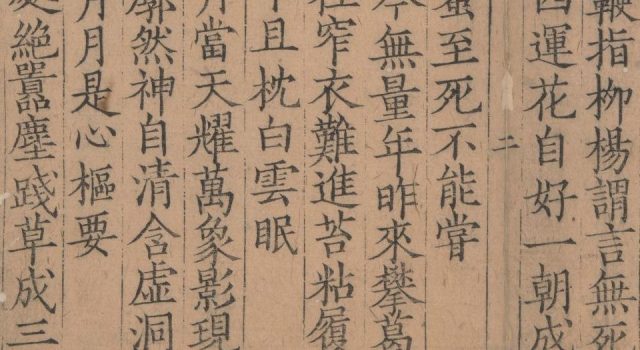 鞭指柳楊謂言無死
四運花自好一朝成
二
蜜至死不能嘗
今無量年昨來攀葛
徑窄衣難進苔粘履
下且枕白雲眠
月當天耀萬象影現
廓然神自清含虛洞
月月是心樞要
處絕囂塵踐草成三